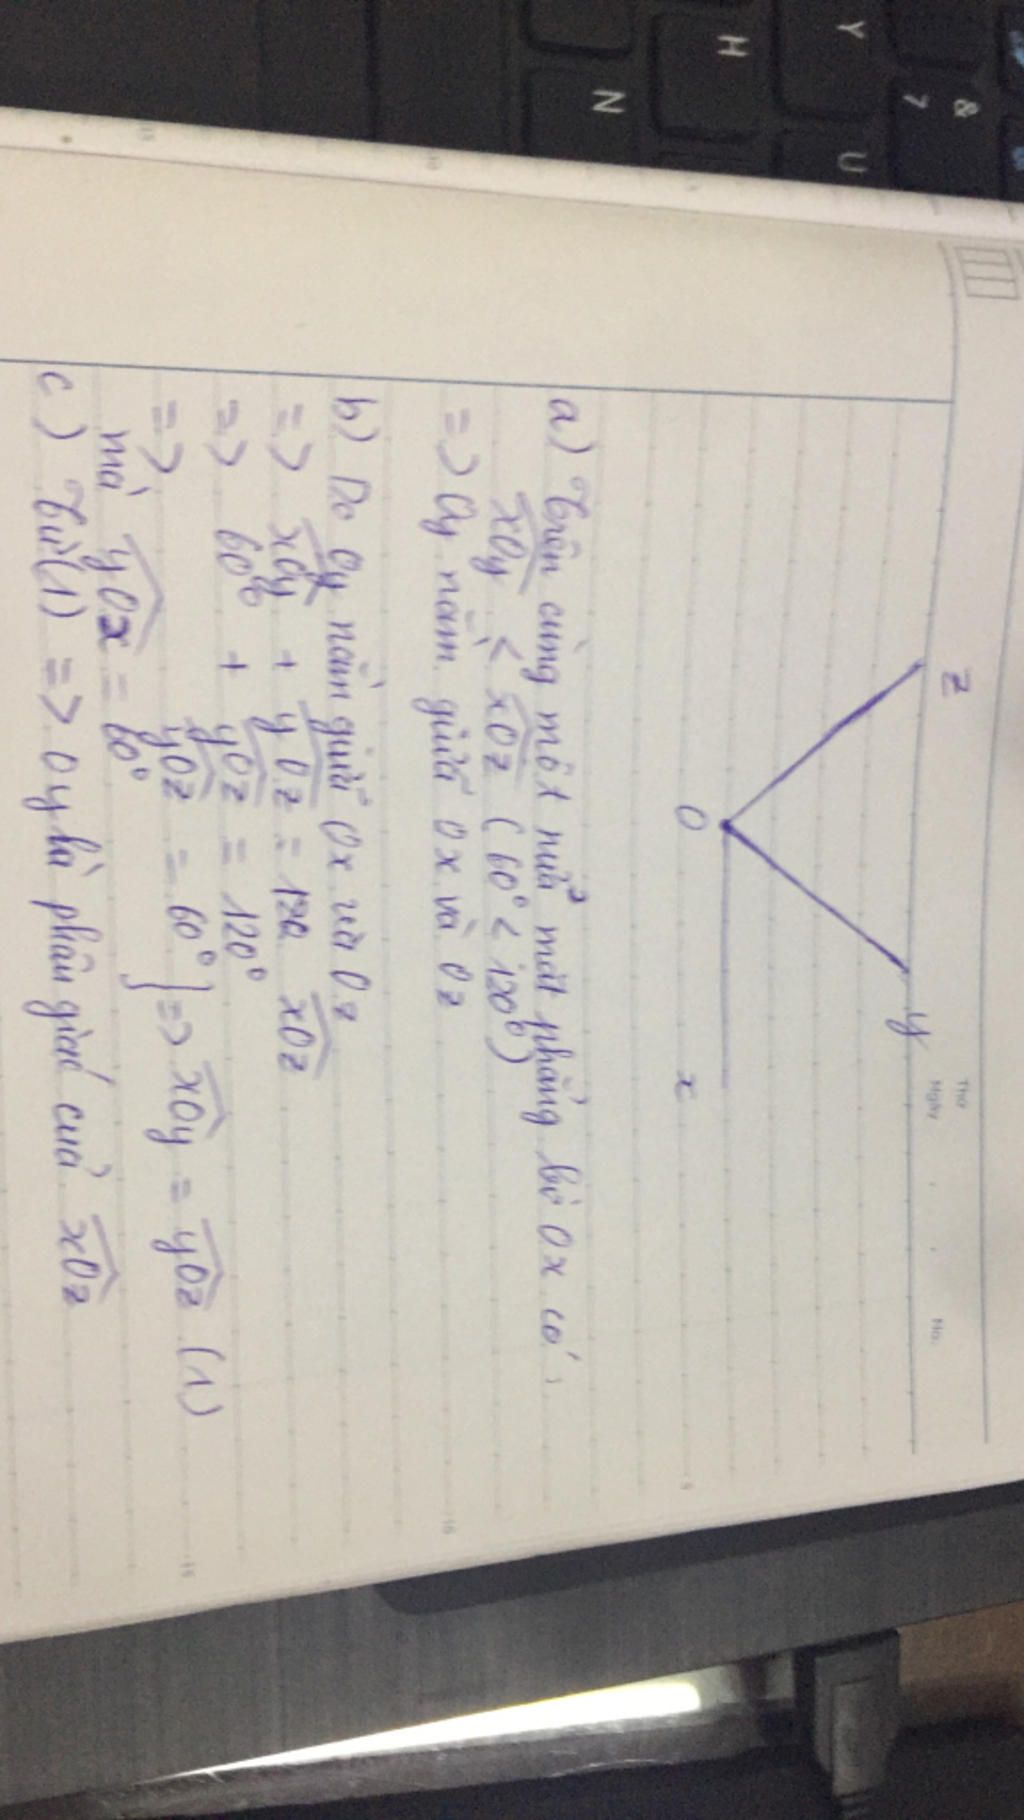 Thứ
Ngày
No.
z
y
O
x
a) Trên cùng một nửa mặt phẳng bờ Ox có
xOy < xOz (60° < 120°)
=> Oy nằm giữa Ox và Oz
b) Do Oy nằm giữa Ox và Oz
=> xOy + yOz = xOz
=> 60° + yOz = 120°
=> yOz = 60° } => xOy = yOz (1)
mà yOx = 60°
c) Từ (1) => Oy là phân giác của xOz
Y
H
N
&
7
U